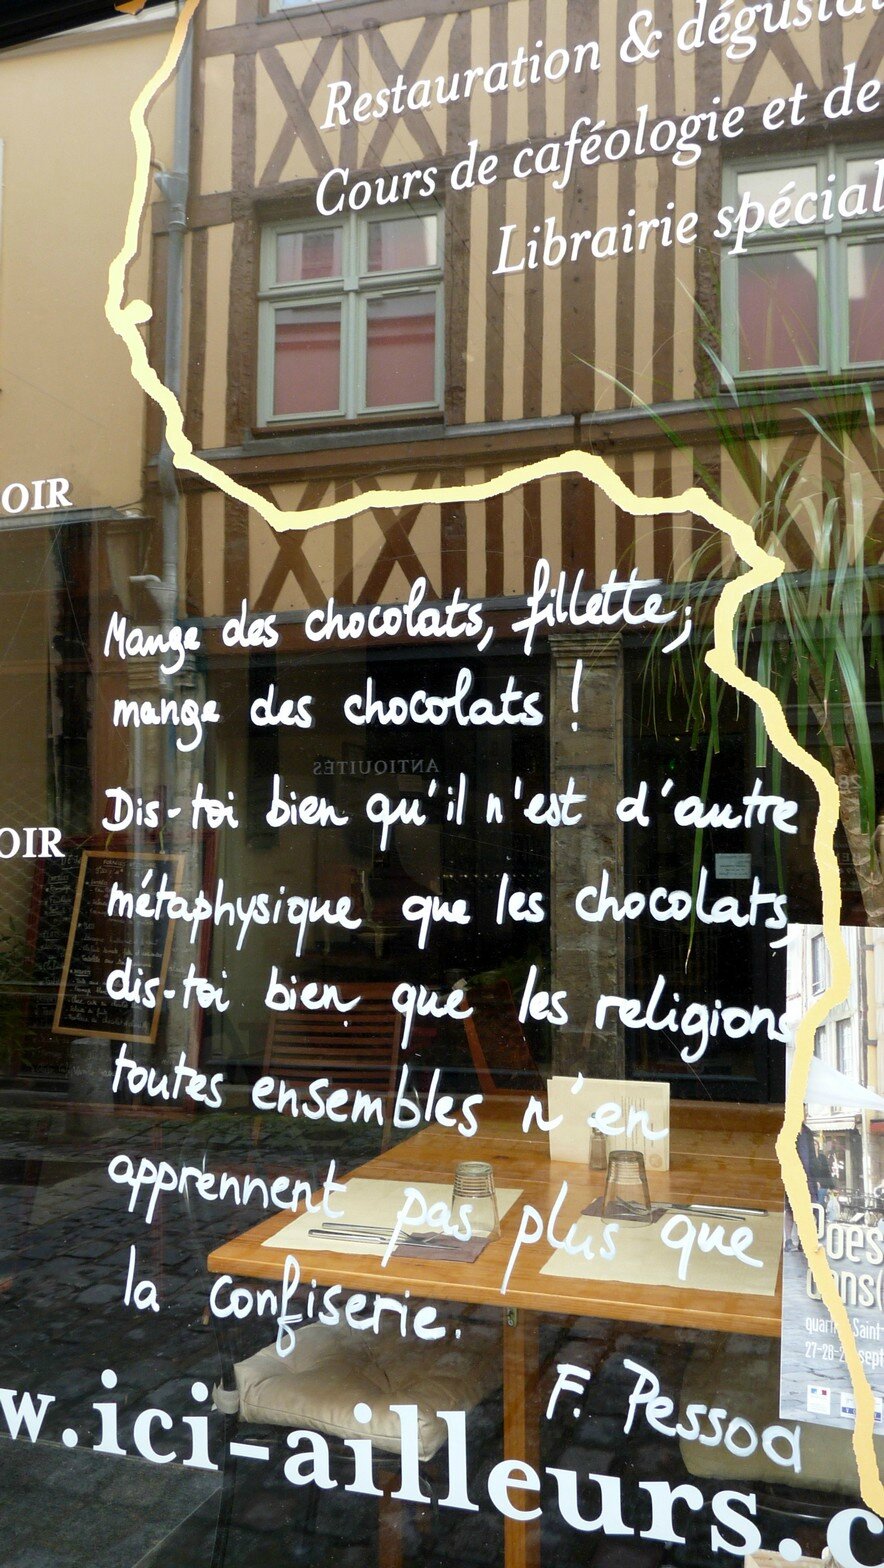 Restauration & dégustat
Cours de caféologie et de
Librairie spécial
OIR
Mange des chocolats, fillette ;
mange des chocolats !
ANTIQUITÉS
Dis-toi bien qu'il n'est d'autre
OIR
métaphysique que les chocolats,
dis-toi bien que les religions
toutes ensembles n'en
apprennent pas plus que
la confiserie.
F. Pessoa
Poés
dans
quartier Saint
27-28-29 sept
w.ici-ailleurs.c